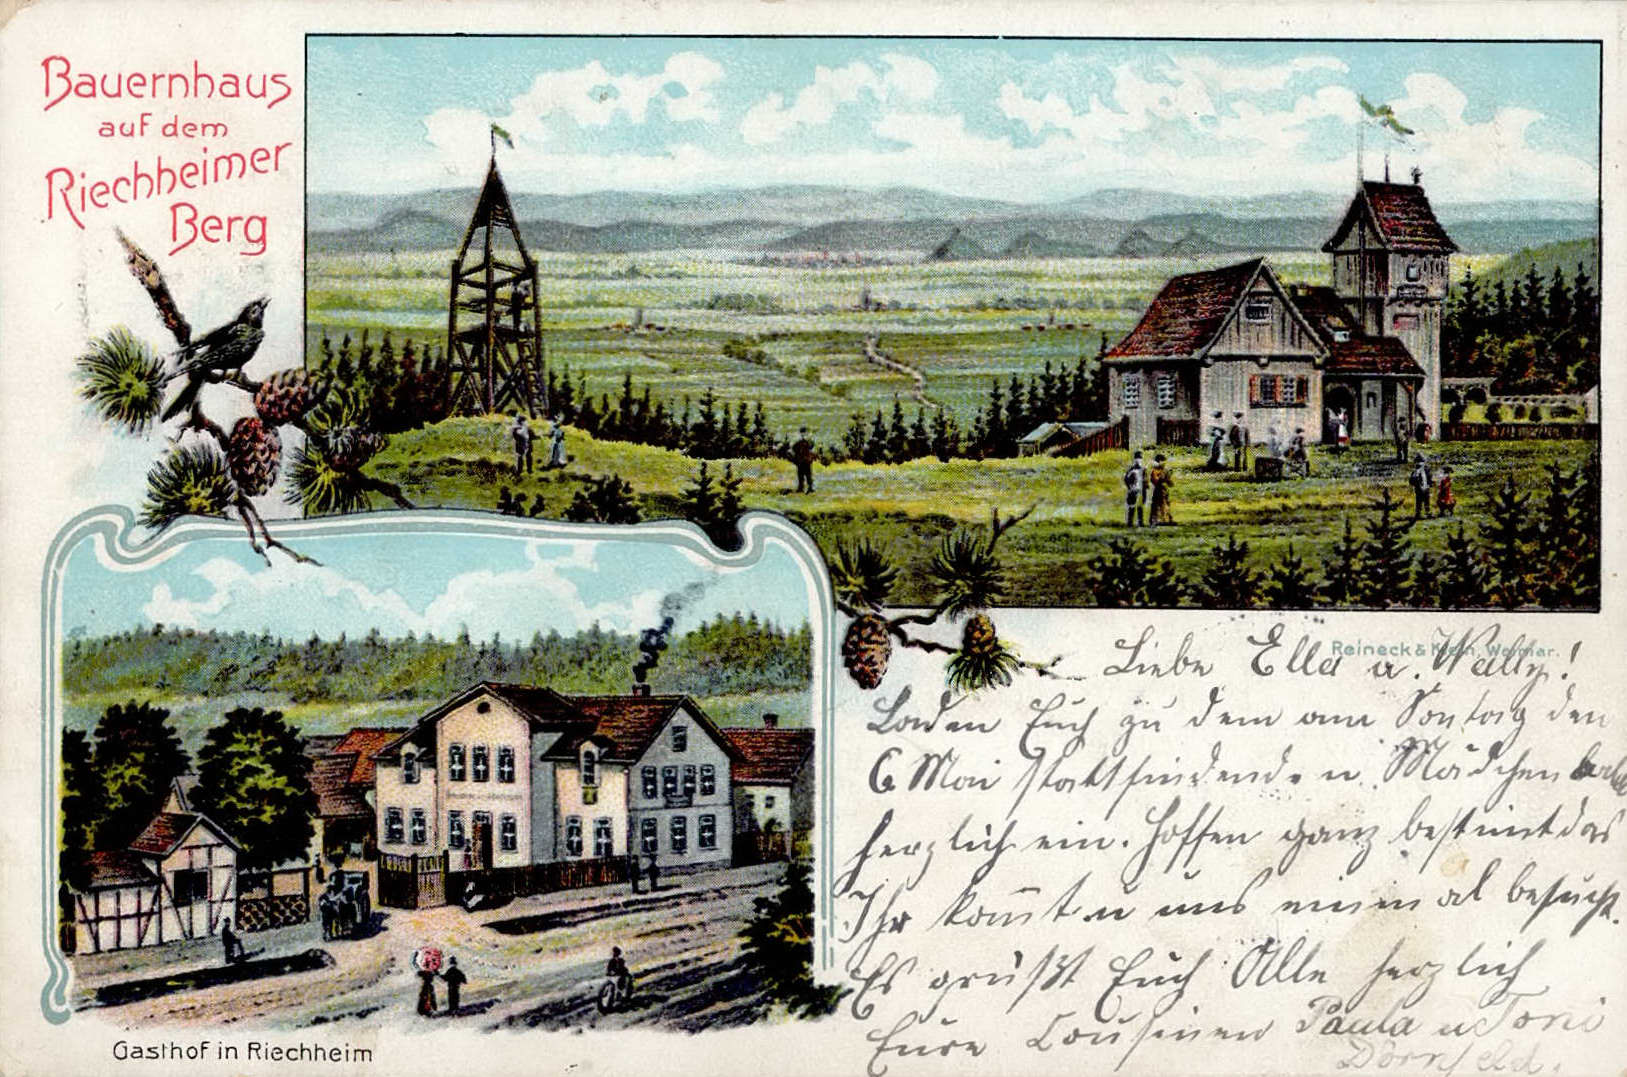 Bauernhaus
auf dem
Riechheimer
Berg
Reineck & Klein, Weimar.
Liebe Ella u. Wally!
Laden Euch zu dem am Sontag den
6 Mai stattfindenden Mädchen
herzlich ein. Hoffen ganz bestimt das
Ihr komt u uns einmal besucht.
Es grüßt Euch Alle herzlich
Eure Cousinen Paula u Toni
Dornfeld.
Gasthof in Riechheim